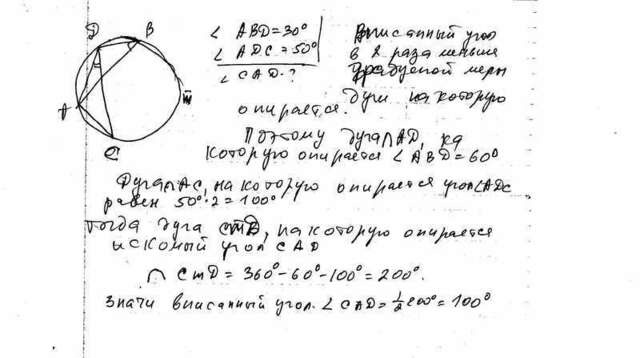 D B
A
C
m
∠ ABD = 30°
∠ ADC = 50°
∠ CAD - ?
Вписанный угол
в 2 раза меньше
градусной меры
дуги на которую
опирается.
Поэтому дуга ∩AD, на
которую опирается ∠ABD = 60°
Дуга ∩AC, на которую опирается угол ∠ADC
равен 50°·2 = 100°
Тогда дуга CmD, на которую опирается
искомый угол CAD
∩ CmD = 360° - 60° - 100° = 200°.
Значи вписанный угол. ∠CAD = 1/2 200° = 100°